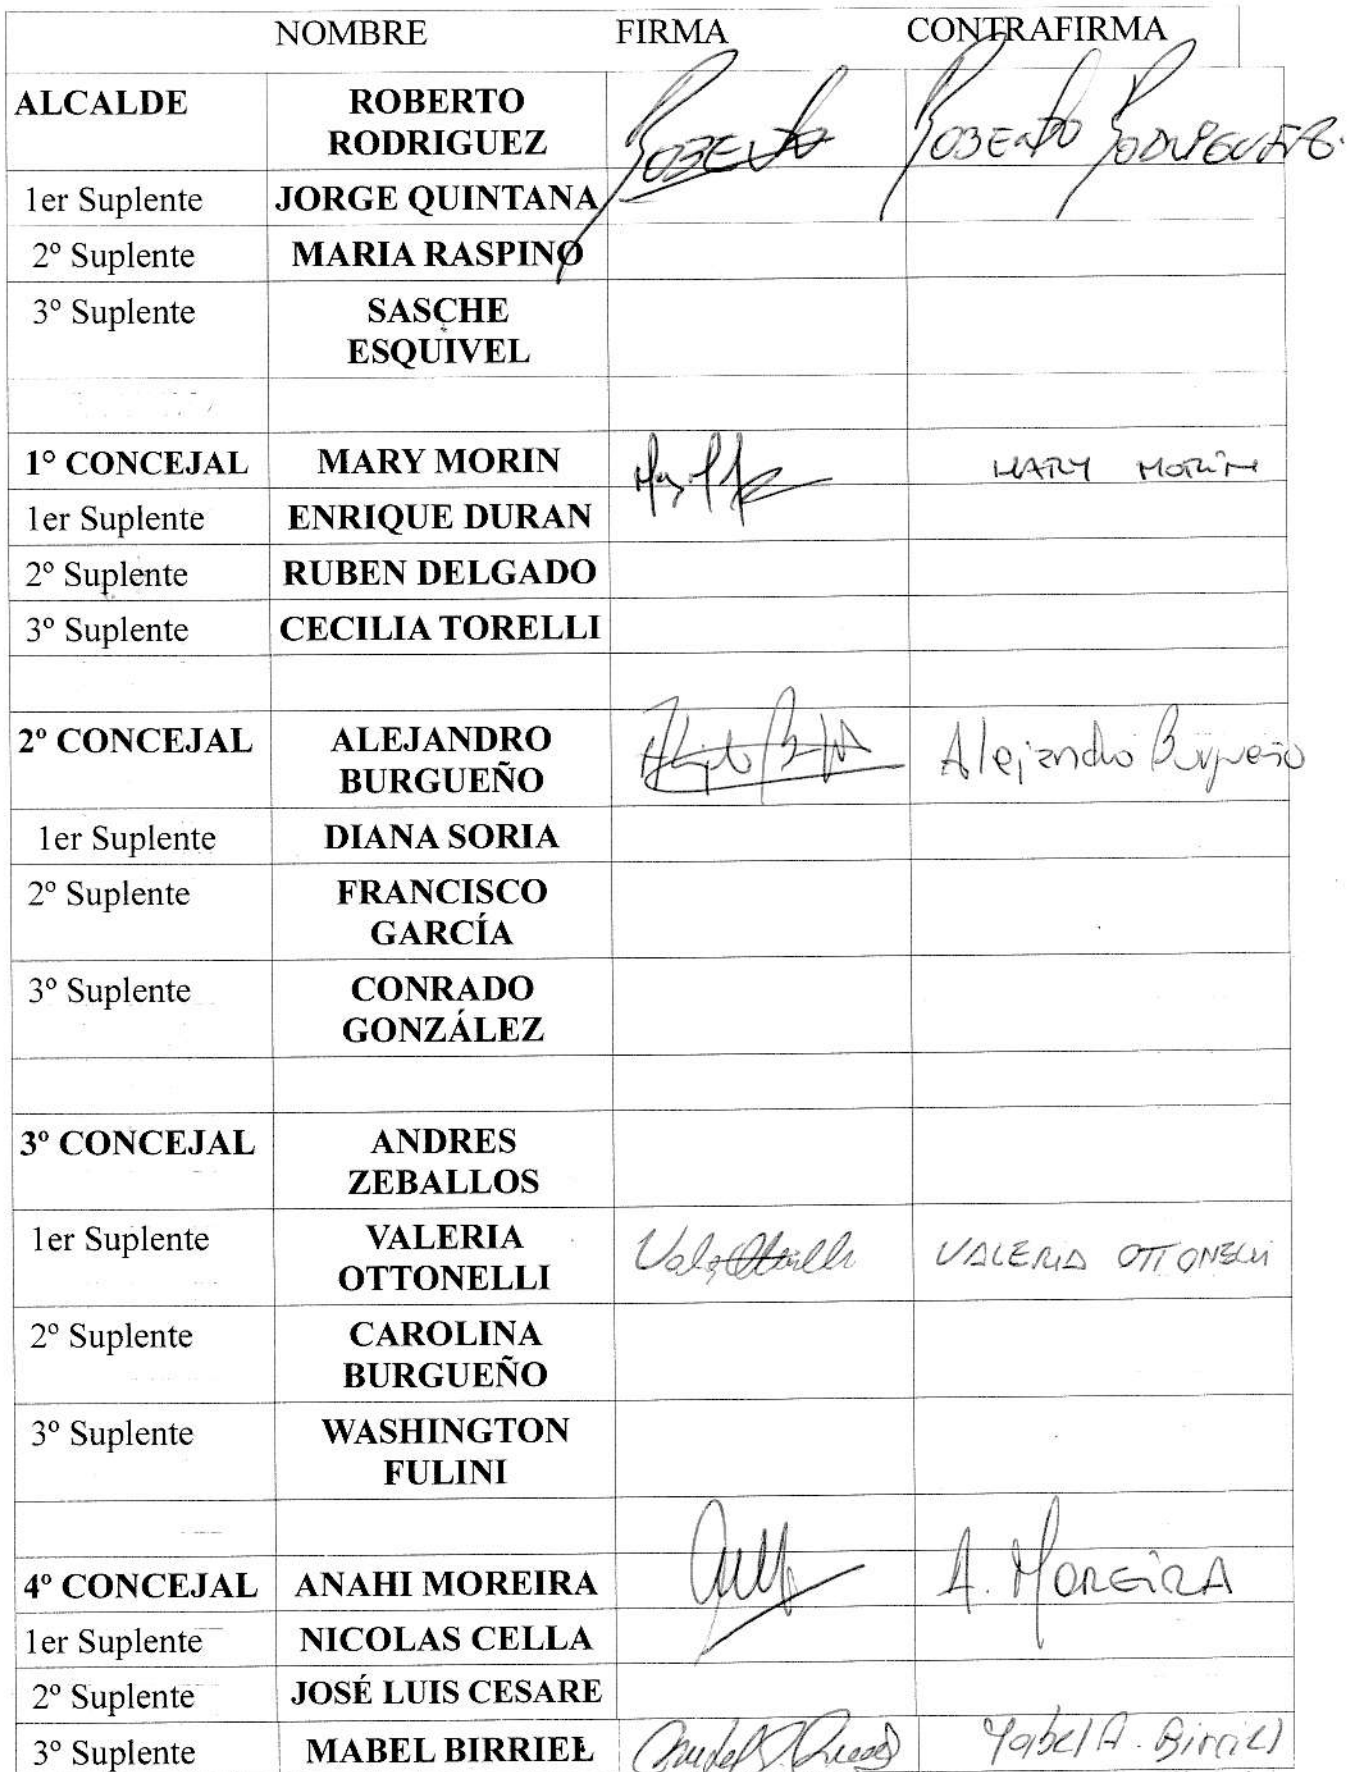 NOMBRE FIRMA CONTRAFIRMA
ALCALDE ROBERTO RODRIGUEZ ROBERTO ROBERTO RODRIGUEZ.
1er Suplente JORGE QUINTANA
2º Suplente MARIA RASPINO
3º Suplente SASCHE ESQUIVEL
1° CONCEJAL MARY MORIN MARY MORIN
1er Suplente ENRIQUE DURAN
2º Suplente RUBEN DELGADO
3º Suplente CECILIA TORELLI
2º CONCEJAL ALEJANDRO BURGUEÑO Alejandro Burgueño
1er Suplente DIANA SORIA
2º Suplente FRANCISCO GARCÍA
3º Suplente CONRADO GONZÁLEZ
3º CONCEJAL ANDRES ZEBALLOS
1er Suplente VALERIA OTTONELLI VALERIA OTTONELLI
2º Suplente CAROLINA BURGUEÑO
3º Suplente WASHINGTON FULINI
4º CONCEJAL ANAHI MOREIRA A. MOREIRA
1er Suplente NICOLAS CELLA
2º Suplente JOSÉ LUIS CESARE
3º Suplente MABEL BIRRIEL Mabel A. Birriel